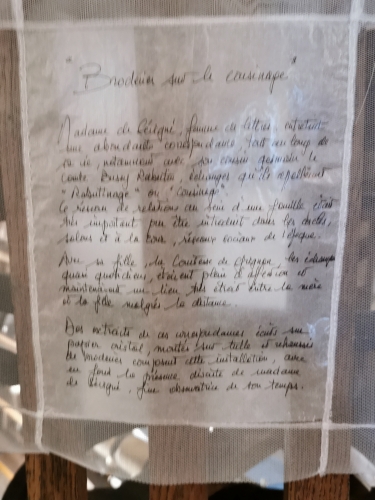 "Broderies sur le cousinage"
Madame de Sévigné, femme de lettres, entretient
une abondante correspondance, tout au long de
sa vie, notamment avec son cousin germain le
comte Bussy Rabutin, échanges qu'ils appellèrent
"Rabutinage" ou "cousinage"
Le réseau de relations au sein d'une famille était
très important pour être introduit dans les cercles,
salons et à la cour, réseaux sociaux de l'époque.
Avec sa fille, la Comtesse de Grignan, les échanges
quasi quotidiens, étaient plein d'affection et
maintenaient un lien très étroit entre la mère
et la fille malgré la distance.
Des extraits de ces correspondances écrits sur
papier cristal, montés sur tulle et rehaussés
de broderies composent cette installation, avec
en fond la présence discrète de madame
de Sévigné, fine observatrice de son temps.